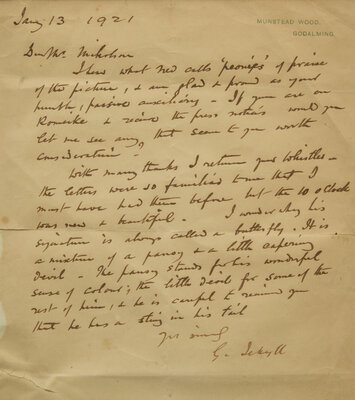 Jany 13 1921
MUNSTEAD WOOD,
GODALMING.
Dear Mr. Nicholson
I hear what Ned calls 'peonies' of praise
of the picture, & am glad & proud as your
humble, passive auxiliary - If you are on
Romeike & receive the press notices would you
let me see any that seem to you worth
consideration -
With many thanks I return your Whistlers -
the letters were so familiar to me that I
must have had them before, but the 10 o'Clock
was new & beautiful - I wonder why his
signature is always called a butterfly. It is
a mixture of a pansy & a little capering
devil - The pansy stands for his wonderful
sense of colour; the little devil for some of the
rest of him, & he is careful to remind you
that he has a sting in his tail
G. Jekyll